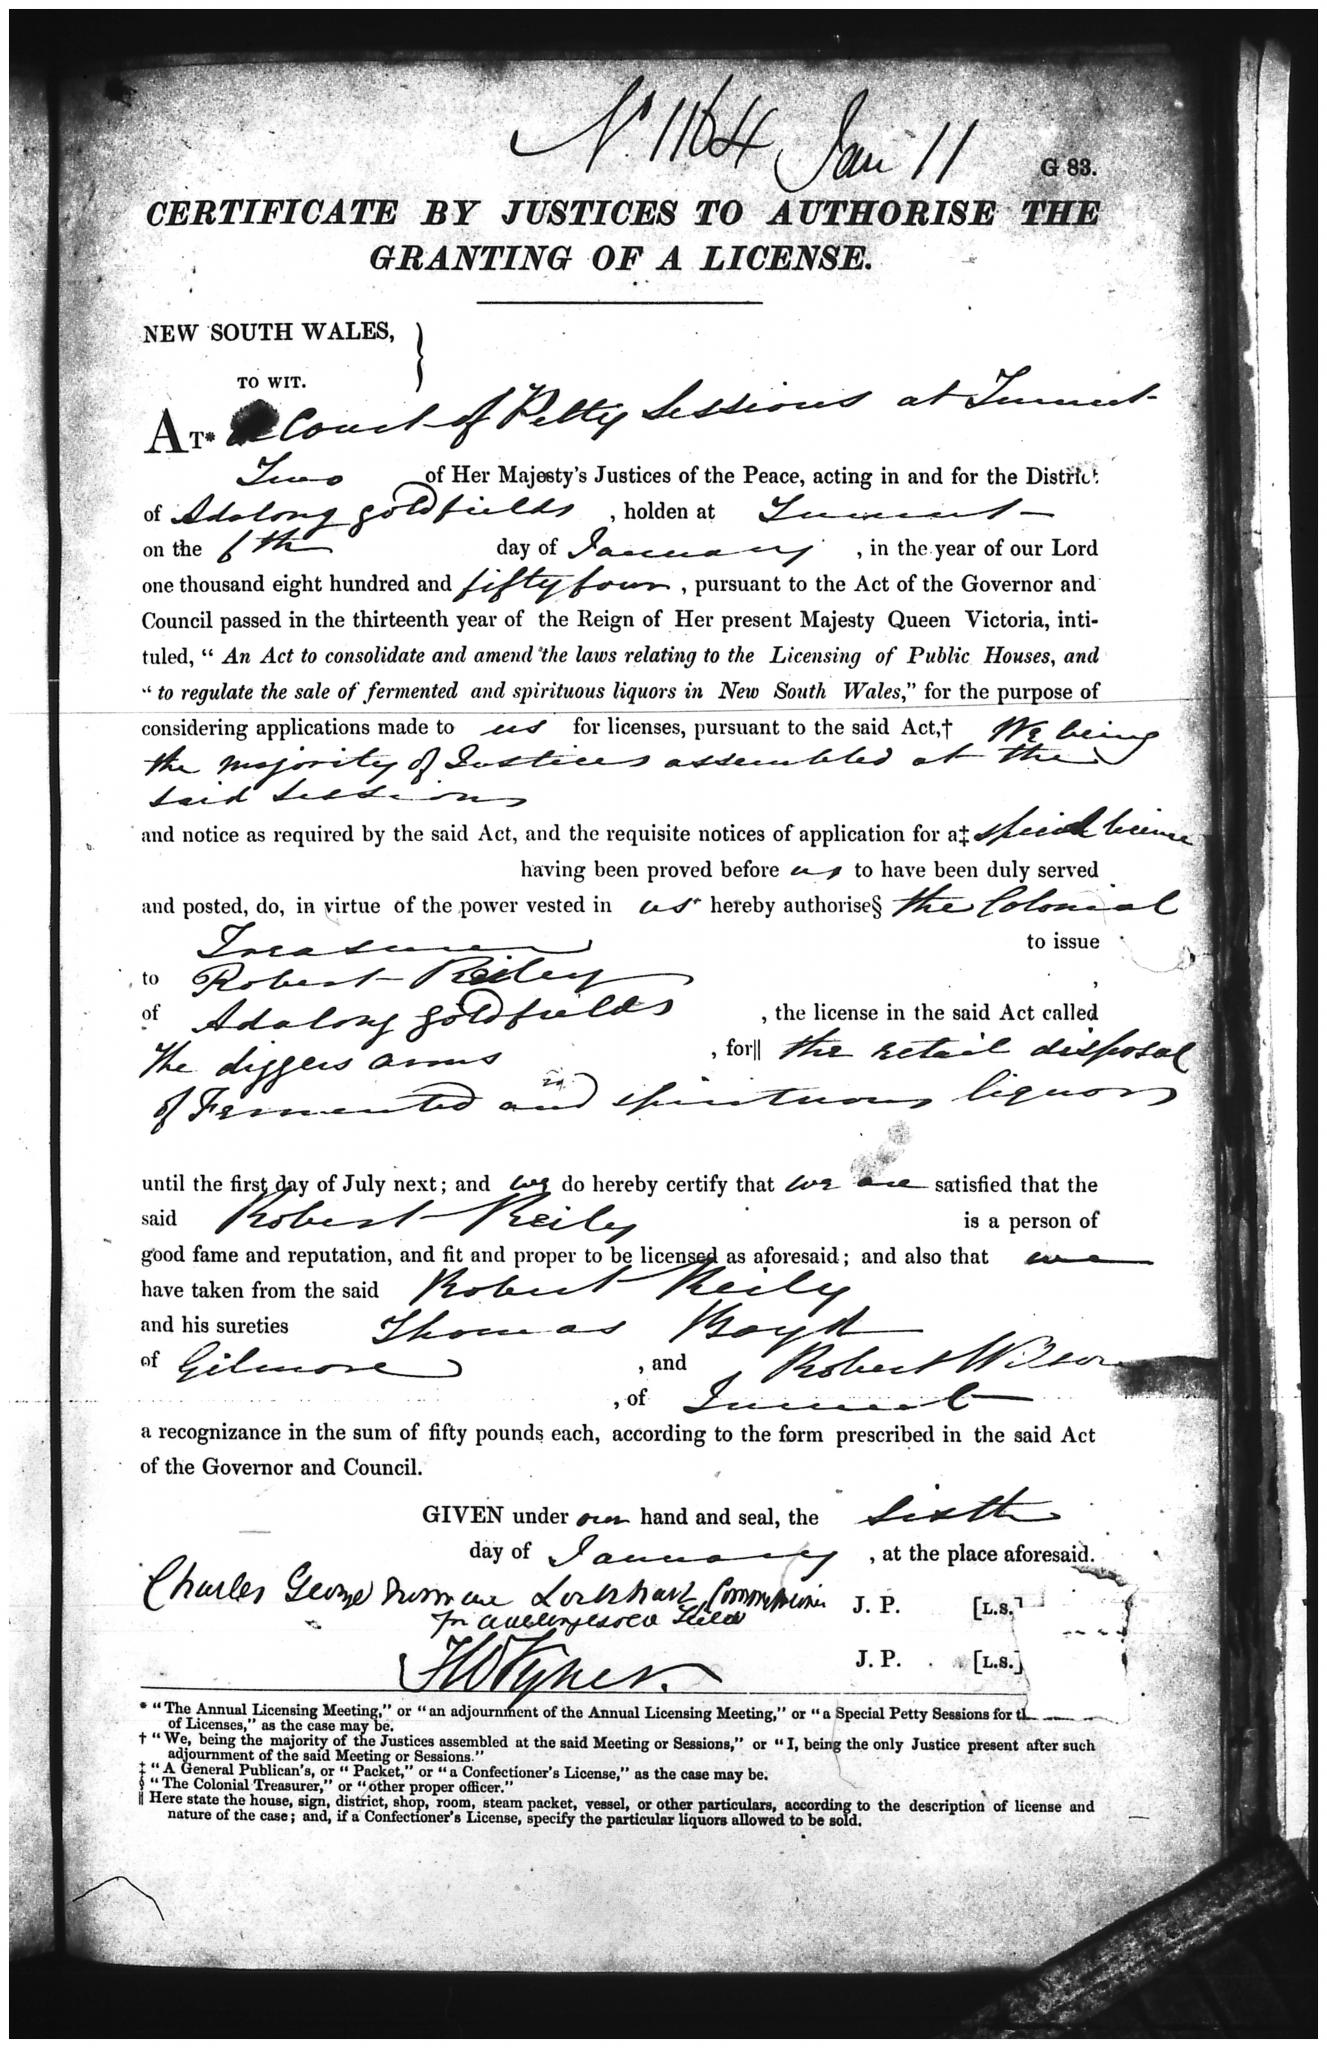 No 1164 Jan 11
G 83.
CERTIFICATE BY JUSTICES TO AUTHORISE THE
GRANTING OF A LICENSE.
NEW SOUTH WALES,
TO WIT.
AT* a Court of Petty Sessions at Tumut
Two of Her Majesty's Justices of the Peace, acting in and for the District
of Adalong goldfields, holden at Tumut
on the 6th day of January, in the year of our Lord
one thousand eight hundred and fifty four, pursuant to the Act of the Governor and
Council passed in the thirteenth year of the Reign of Her present Majesty Queen Victoria, inti-
tuled, "An Act to consolidate and amend the laws relating to the Licensing of Public Houses, and
"to regulate the sale of fermented and spirituous liquors in New South Wales," for the purpose of
considering applications made to us for licenses, pursuant to the said Act,† We being
the majority of Justices assembled at the
said sessions
and notice as required by the said Act, and the requisite notices of application for a‡ special license
having been proved before us to have been duly served
and posted, do, in virtue of the power vested in us hereby authorise§ the Colonial
Treasurer to issue
to Robert Reily,
of Adalong goldfields, the license in the said Act called
The diggers arms, for‖ the retail disposal
of Fermented and spirituous liquors
until the first day of July next; and we do hereby certify that we are satisfied that the
said Robert Reily is a person of
good fame and reputation, and fit and proper to be licensed as aforesaid; and also that we
have taken from the said Robert Reily
and his sureties Thomas Boyd
of Gilmore, and Robert Wilson
, of Tumut
a recognizance in the sum of fifty pounds each, according to the form prescribed in the said Act
of the Governor and Council.
GIVEN under our hand and seal, the Sixth
day of January, at the place aforesaid.
Charles George Norman Lockhart, Commissioner J. P. [L.S.]
for
J. P. [L.S.]
* "The Annual Licensing Meeting," or "an adjournment of the Annual Licensing Meeting," or "a Special Petty Sessions for
of Licenses," as the case may be.
† "We, being the majority of the Justices assembled at the said Meeting or Sessions," or "I, being the only Justice present after such
adjournment of the said Meeting or Sessions."
‡ "A General Publican's, or "Packet," or "a Confectioner's License," as the case may be.
§ "The Colonial Treasurer," or "other proper officer."
‖ Here state the house, sign, district, shop, room, steam packet, vessel, or other particulars, according to the description of license and
nature of the case; and, if a Confectioner's License, specify the particular liquors allowed to be sold.